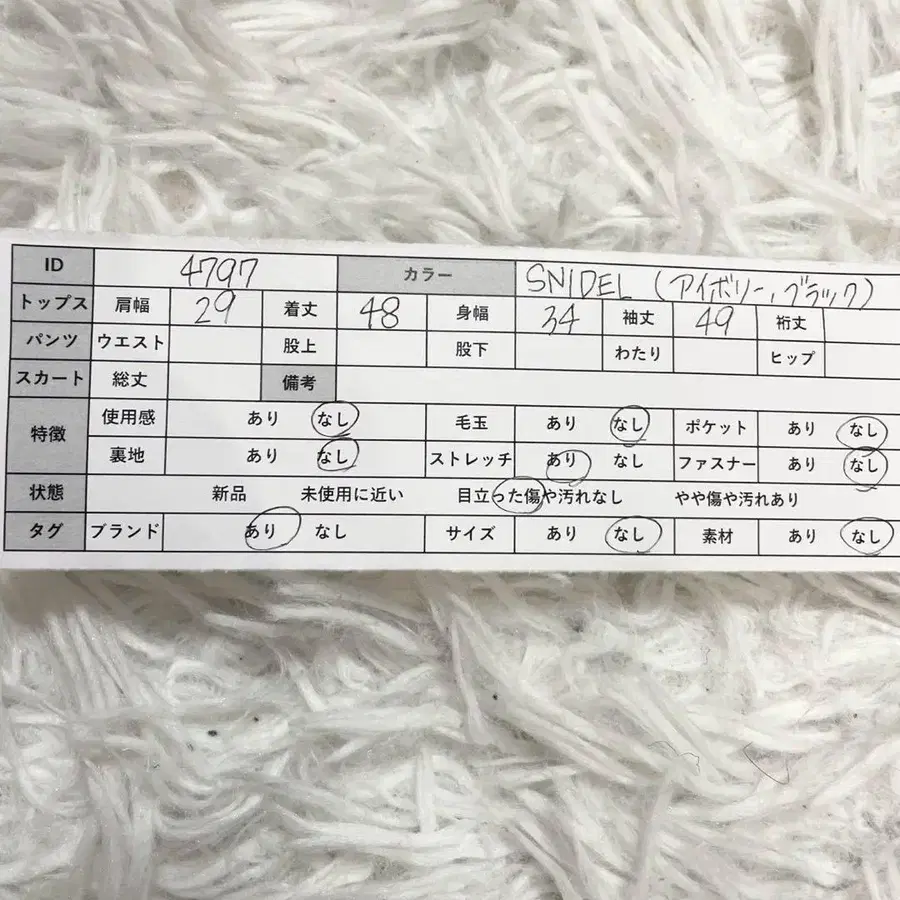 ID 4797 カラー SNIDEL (アイボリー, ブラック)
トップス 肩幅 29 着丈 48 身幅 34 袖丈 49 裄丈
パンツ ウエスト 股上 股下 わたり ヒップ
スカート 総丈 備考
特徴 使用感 あり なし 毛玉 あり なし ポケット あり なし
裏地 あり なし ストレッチ あり なし ファスナー あり なし
状態 新品 未使用に近い 目立った傷や汚れなし やや傷や汚れあり
タグ ブランド あり なし サイズ あり なし 素材 あり なし